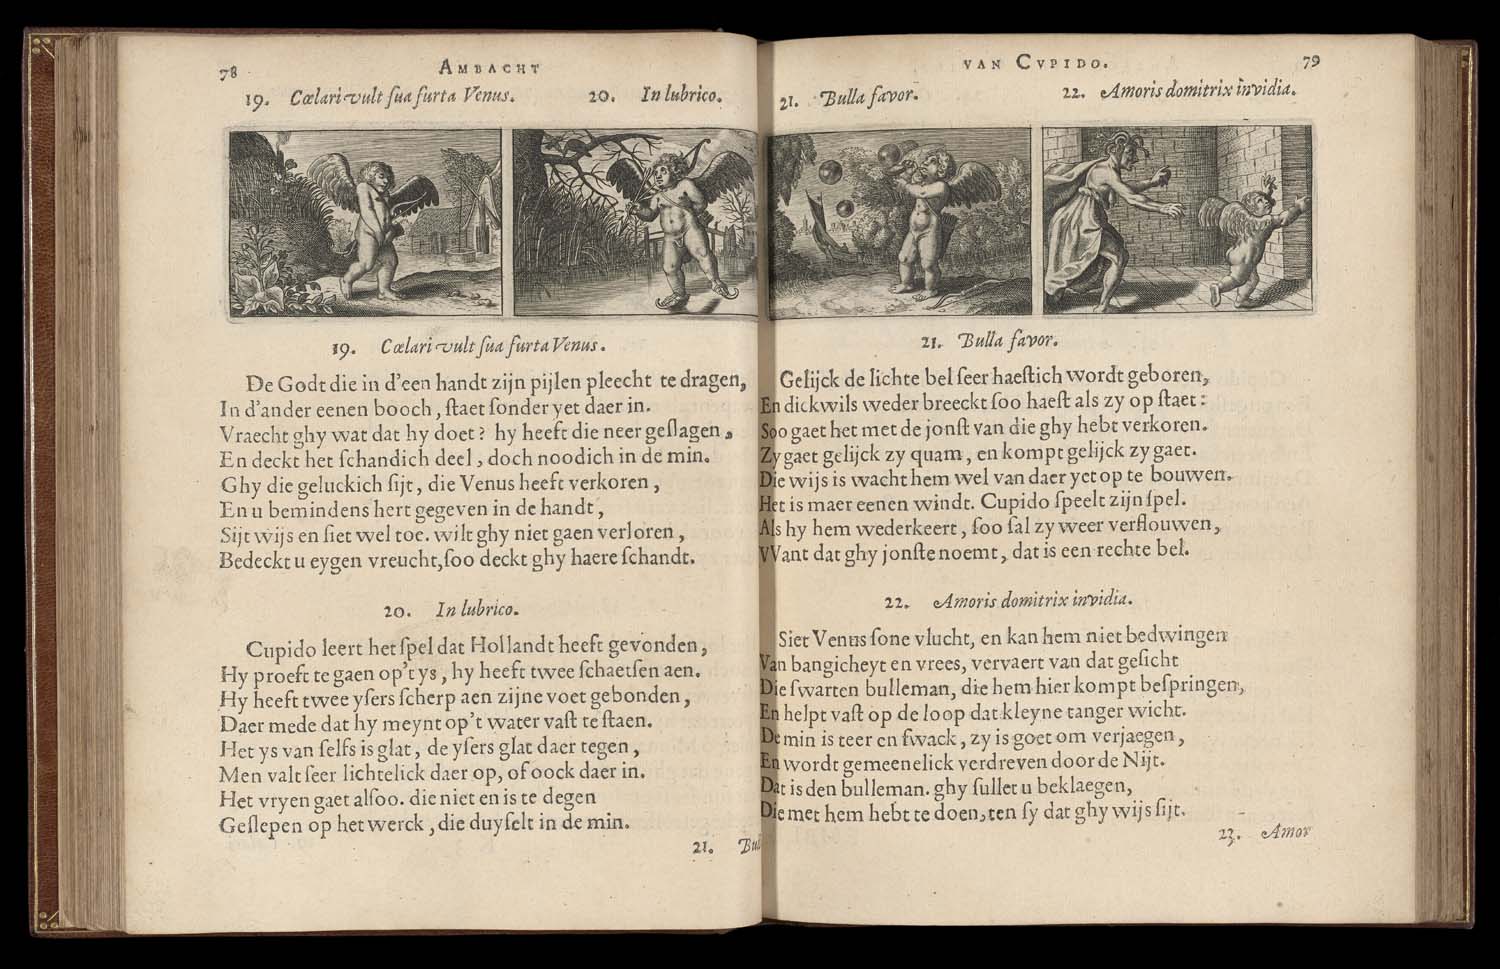 78
AMBACHT
19. Cœlari vult sua furta Venus.
20. In lubrico.
19. Cœlari vult sua furta Venus.
De Godt die in d'een handt zijn pijlen pleecht te dragen,
In d'ander eenen booch, staet sonder yet daer in.
Vraecht ghy wat dat hy doet? hy heeft die neer geslagen,
En deckt het schandich deel, doch noodich in de min.
Ghy die geluckich sijt, die Venus heeft verkoren,
En u bemindens hert gegeven in de handt,
Sijt wijs en siet wel toe. wilt ghy niet gaen verloren,
Bedeckt u eygen vreucht, soo deckt ghy haere schandt.
20. In lubrico.
Cupido leert het spel dat Hollandt heeft gevonden,
Hy proeft te gaen op't ys, hy heeft twee schaetsen aen.
Hy heeft twee ysers scherp aen zijne voet gebonden,
Daer mede dat hy meynt op't water vast te staen.
Het ys van selfs is glat, de ysers glat daer tegen,
Men valt seer lichtelick daer op, of oock daer in.
Het vryen gaet alsoo. die niet en is te degen
Geslepen op het werck, die duyselt in de min.
21. Bul
VAN CVPIDO.
79
21. Bulla favor.
22. Amoris domitrix invidia.
21. Bulla favor.
Gelijck de lichte bel seer haestich wordt geboren,
En dickwils weder breeckt soo haest als zy op staet:
Soo gaet het met de jonst van die ghy hebt verkoren.
Zy gaet gelijck zy quam, en kompt gelijck zy gaet.
Die wijs is wacht hem wel van daer yet op te bouwen.
Het is maer eenen windt. Cupido speelt zijn spel.
Als hy hem wederkeert, soo sal zy weer verflouwen,
VVant dat ghy jonste noemt, dat is een rechte bel.
22. Amoris domitrix invidia.
Siet Venus sone vlucht, en kan hem niet bedwingen
Van bangicheyt en vrees, vervaert van dat gesicht
Die swarten bulleman, die hem hier kompt bespringen,
En helpt vast op de loop dat kleyne tanger wicht.
De min is teer en swack, zy is goet om verjaegen,
En wordt gemeenelick verdreven door de Nijt.
Dat is den bulleman. ghy sullet u beklaegen,
Die met hem hebt te doen, ten sy dat ghy wijs sijt.
23. Amor